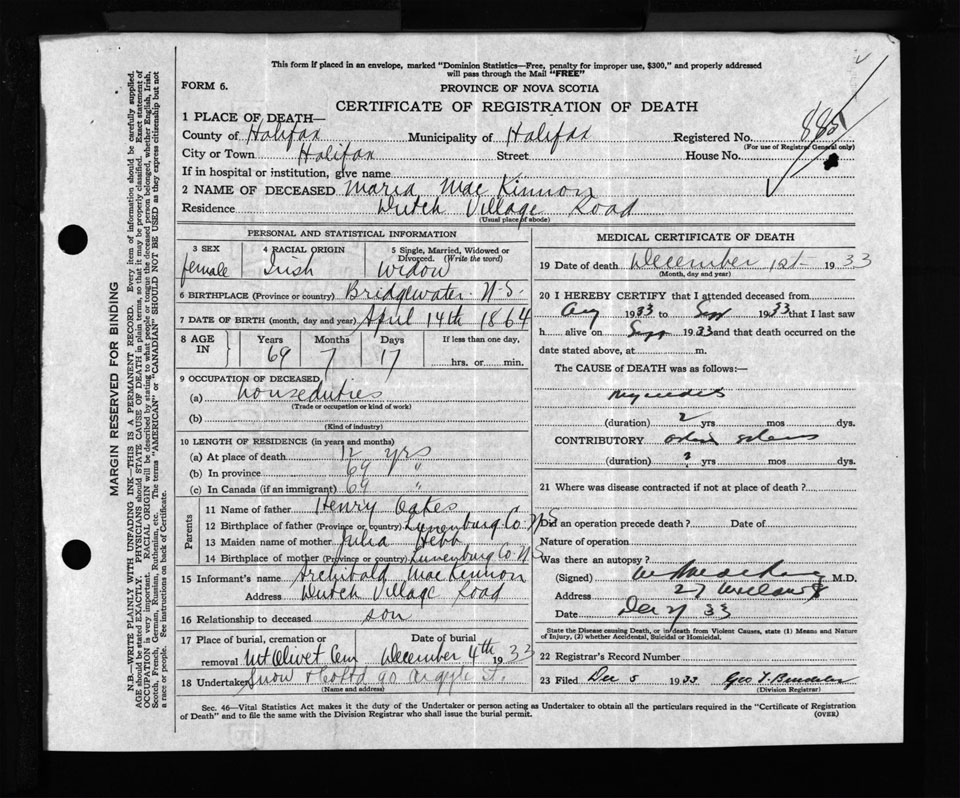 This form if placed in an envelope, marked "Dominion Statistics—Free, penalty for improper use, $300," and properly addressed
will pass through the Mail "FREE"
FORM 6.
PROVINCE OF NOVA SCOTIA
CERTIFICATE OF REGISTRATION OF DEATH
1 PLACE OF DEATH—
County of Halifax Municipality of Halifax Registered No. 885
(For use of Registrar General only)
City or Town Halifax Street House No.
If in hospital or institution, give name
2 NAME OF DECEASED Maria Mac Kinnon
Residence Dutch Village Road
(Usual place of abode)
PERSONAL AND STATISTICAL INFORMATION
3 SEX 4 RACIAL ORIGIN 5 Single, Married, Widowed or
Divorced. (Write the word)
female Irish Widow
6 BIRTHPLACE (Province or country) Bridgewater N.S.
7 DATE OF BIRTH (month, day and year) April 14th 1864
8 AGE IN Years Months Days If less than one day,
69 7 17 hrs. or min.
9 OCCUPATION OF DECEASED
(a) houseduties
(Trade or occupation or kind of work)
(b)
(Kind of industry)
10 LENGTH OF RESIDENCE (in years and months)
(a) At place of death 12 yrs
(b) In province 69 "
(c) In Canada (if an immigrant) 69 "
Parents
11 Name of father Henry Oakes
12 Birthplace of father (Province or country) Lunenburg Co. N.S
13 Maiden name of mother Julia Hebb
14 Birthplace of mother (Province or country) Lunenburg Co. N.S
15 Informant's name Archibald Mac Kinnon
Address Dutch Village Road
16 Relationship to deceased son
17 Place of burial, cremation or Date of burial
removal Mt Olivet Cem December 4th 1933
18 Undertaker Snow & Co Ltd 90 Argyle St.
(Name and address)
MEDICAL CERTIFICATE OF DEATH
19 Date of death December 1st 1933
(Month, day and year)
20 I HEREBY CERTIFY that I attended deceased from
Aug 1933 to Sept 1933 that I last saw
h alive on Sept 1933 and that death occurred on the
date stated above, at m.
The CAUSE of DEATH was as follows:—
(duration) 2 yrs mos dys.
CONTRIBUTORY
(duration) ? yrs mos dys.
21 Where was disease contracted if not at place of death?
Did an operation precede death? Date of
Nature of operation
Was there an autopsy?
(Signed) M.D.
Address 27
Date Dec 4 33
State the Disease causing Death, or in death from Violent Causes, state (1) Means and Nature
of Injury, (2) whether Accidental, Suicidal or Homicidal.
22 Registrar's Record Number
23 Filed Dec 5 1933 Geo
(Division Registrar)
Sec. 46—Vital Statistics Act makes it the duty of the Undertaker or person acting as Undertaker to obtain all the particulars required in the "Certificate of Registration
of Death" and to file the same with the Division Registrar who shall issue the burial permit.
(OVER)
MARGIN RESERVED FOR BINDING
N.B.—WRITE PLAINLY WITH UNFADING INK—THIS IS A PERMANENT RECORD. Every item of information should be carefully supplied.
AGE should be stated EXACTLY. PHYSICIANS should STATE CAUSE OF DEATH in plain terms, so that it may be properly classified. Exact statement of
OCCUPATION is very important. RACIAL ORIGIN will be described by stating to what people or tongue the deceased person belonged, whether English, Irish,
Scotch, French, German, Russian, Ruthenian, etc. The terms "AMERICAN" or "CANADIAN" SHOULD NOT BE USED as they express citizenship but not
a race or people. See instructions on back of Certificate.